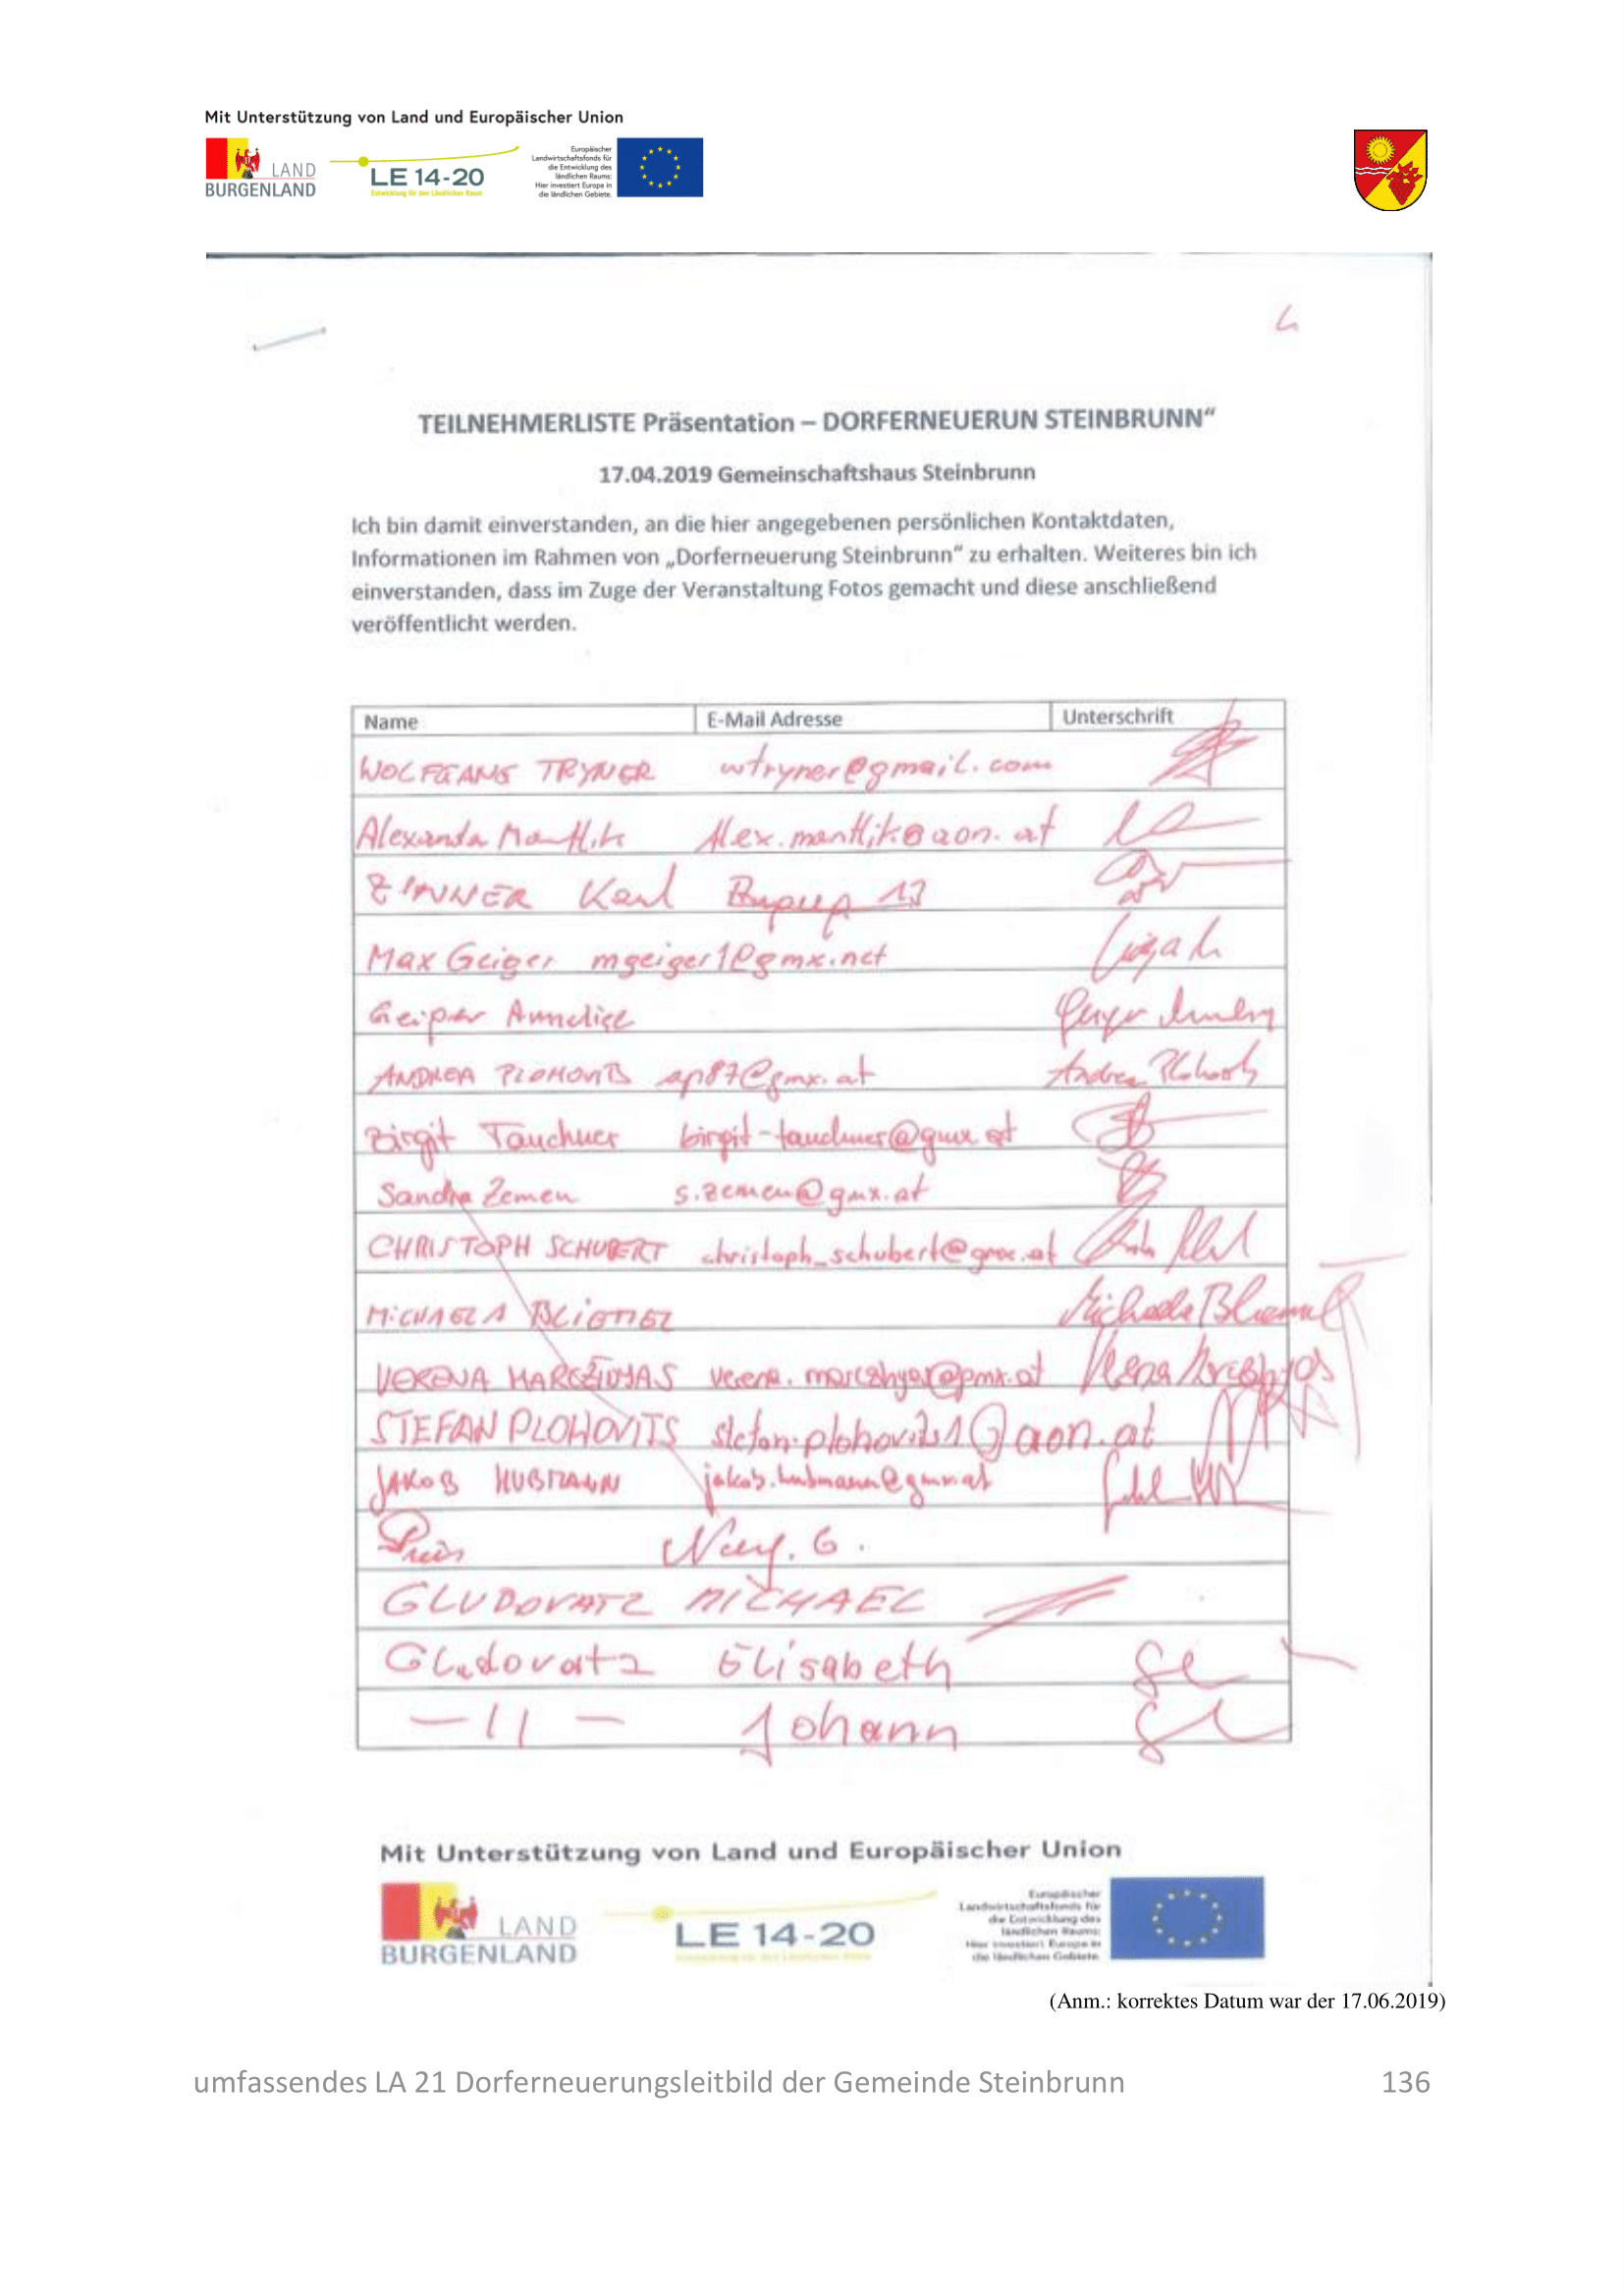 Mit Unterstützung von Land und Europäischer Union
LAND
BURGENLAND
LE 14-20
Entwicklung für den Ländlichen Raum
Europäischer
Landwirtschaftsfonds für
die Entwicklung des
ländlichen Raums:
Hier investiert Europa in
die ländlichen Gebiete.
TEILNEHMERLISTE Präsentation – DORFERNEUERUN STEINBRUNN“
17.04.2019 Gemeinschaftshaus Steinbrunn
Ich bin damit einverstanden, an die hier angegebenen persönlichen Kontaktdaten,
Informationen im Rahmen von „Dorferneuerung Steinbrunn“ zu erhalten. Weiteres bin ich
einverstanden, dass im Zuge der Veranstaltung Fotos gemacht und diese anschließend
veröffentlicht werden.
Name E-Mail Adresse Unterschrift
WOLFGANG TRYNER wtryner@gmail.com
Alexanda Mantlik Alex.mantlik@aon.at
ZINNER Karl 13
Max Geiger mgeiger1@gmx.net
Annelise
ANDREA PLOHOVITS ap87@gmx.at Andrea Plohovits
Birgit Tauchner birgit-tauchner@gmx.at
Sandra Zemen s.zemen@gmx.at
CHRISTOPH SCHUBERT christoph_schubert@gmx.at
MICHAELA Michaela
VERENA
STEFAN PLOHOVITS stefan.plohovits1@aon.at
JAKOB HUBMANN jakob.hubmann@gmx.at
6.
GLUDOVATZ MICHAEL
Gludovatz Elisabeth
-11- Johann
Mit Unterstützung von Land und Europäischer Union
LAND
BURGENLAND
LE 14-20
Europäischer
Landwirtschaftsfonds für
die Entwicklung des
ländlichen Raums:
Hier investiert Europa in
die ländlichen Gebiete.
(Anm.: korrektes Datum war der 17.06.2019)
umfassendes LA 21 Dorferneuerungsleitbild der Gemeinde Steinbrunn 136